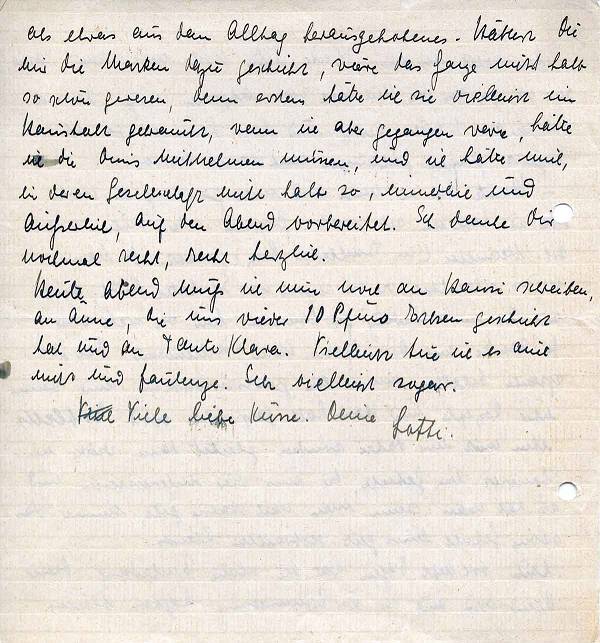 als etwas aus dem Alltag herausgehobenes. Hättest Du
mir die Marken dazu geschickt, wäre das Ganze nicht halb
so schön gewesen, denn erstens hätte ich sie vielleicht im
Haushalt gebraucht, wenn ich aber gegangen wäre, hätte
ich die Omis mitnehmen müssen, und ich hätte mich,
in deren Gesellschaft nicht halb so, innerlich und
äußerlich, auf den Abend vorbereitet. Ich danke Dir
nochmal recht, recht herzlich.
Heute Abend muß ich nun noch an Hansi schreiben,
an Änne, die uns wieder 10 Pfund Erbsen geschickt
hat und an Tante Klara. Vielleicht tue ich es auch
nicht und faulenze. Sehr vielleicht sogar.
Viele liebe Küsse. Deine Lotti.